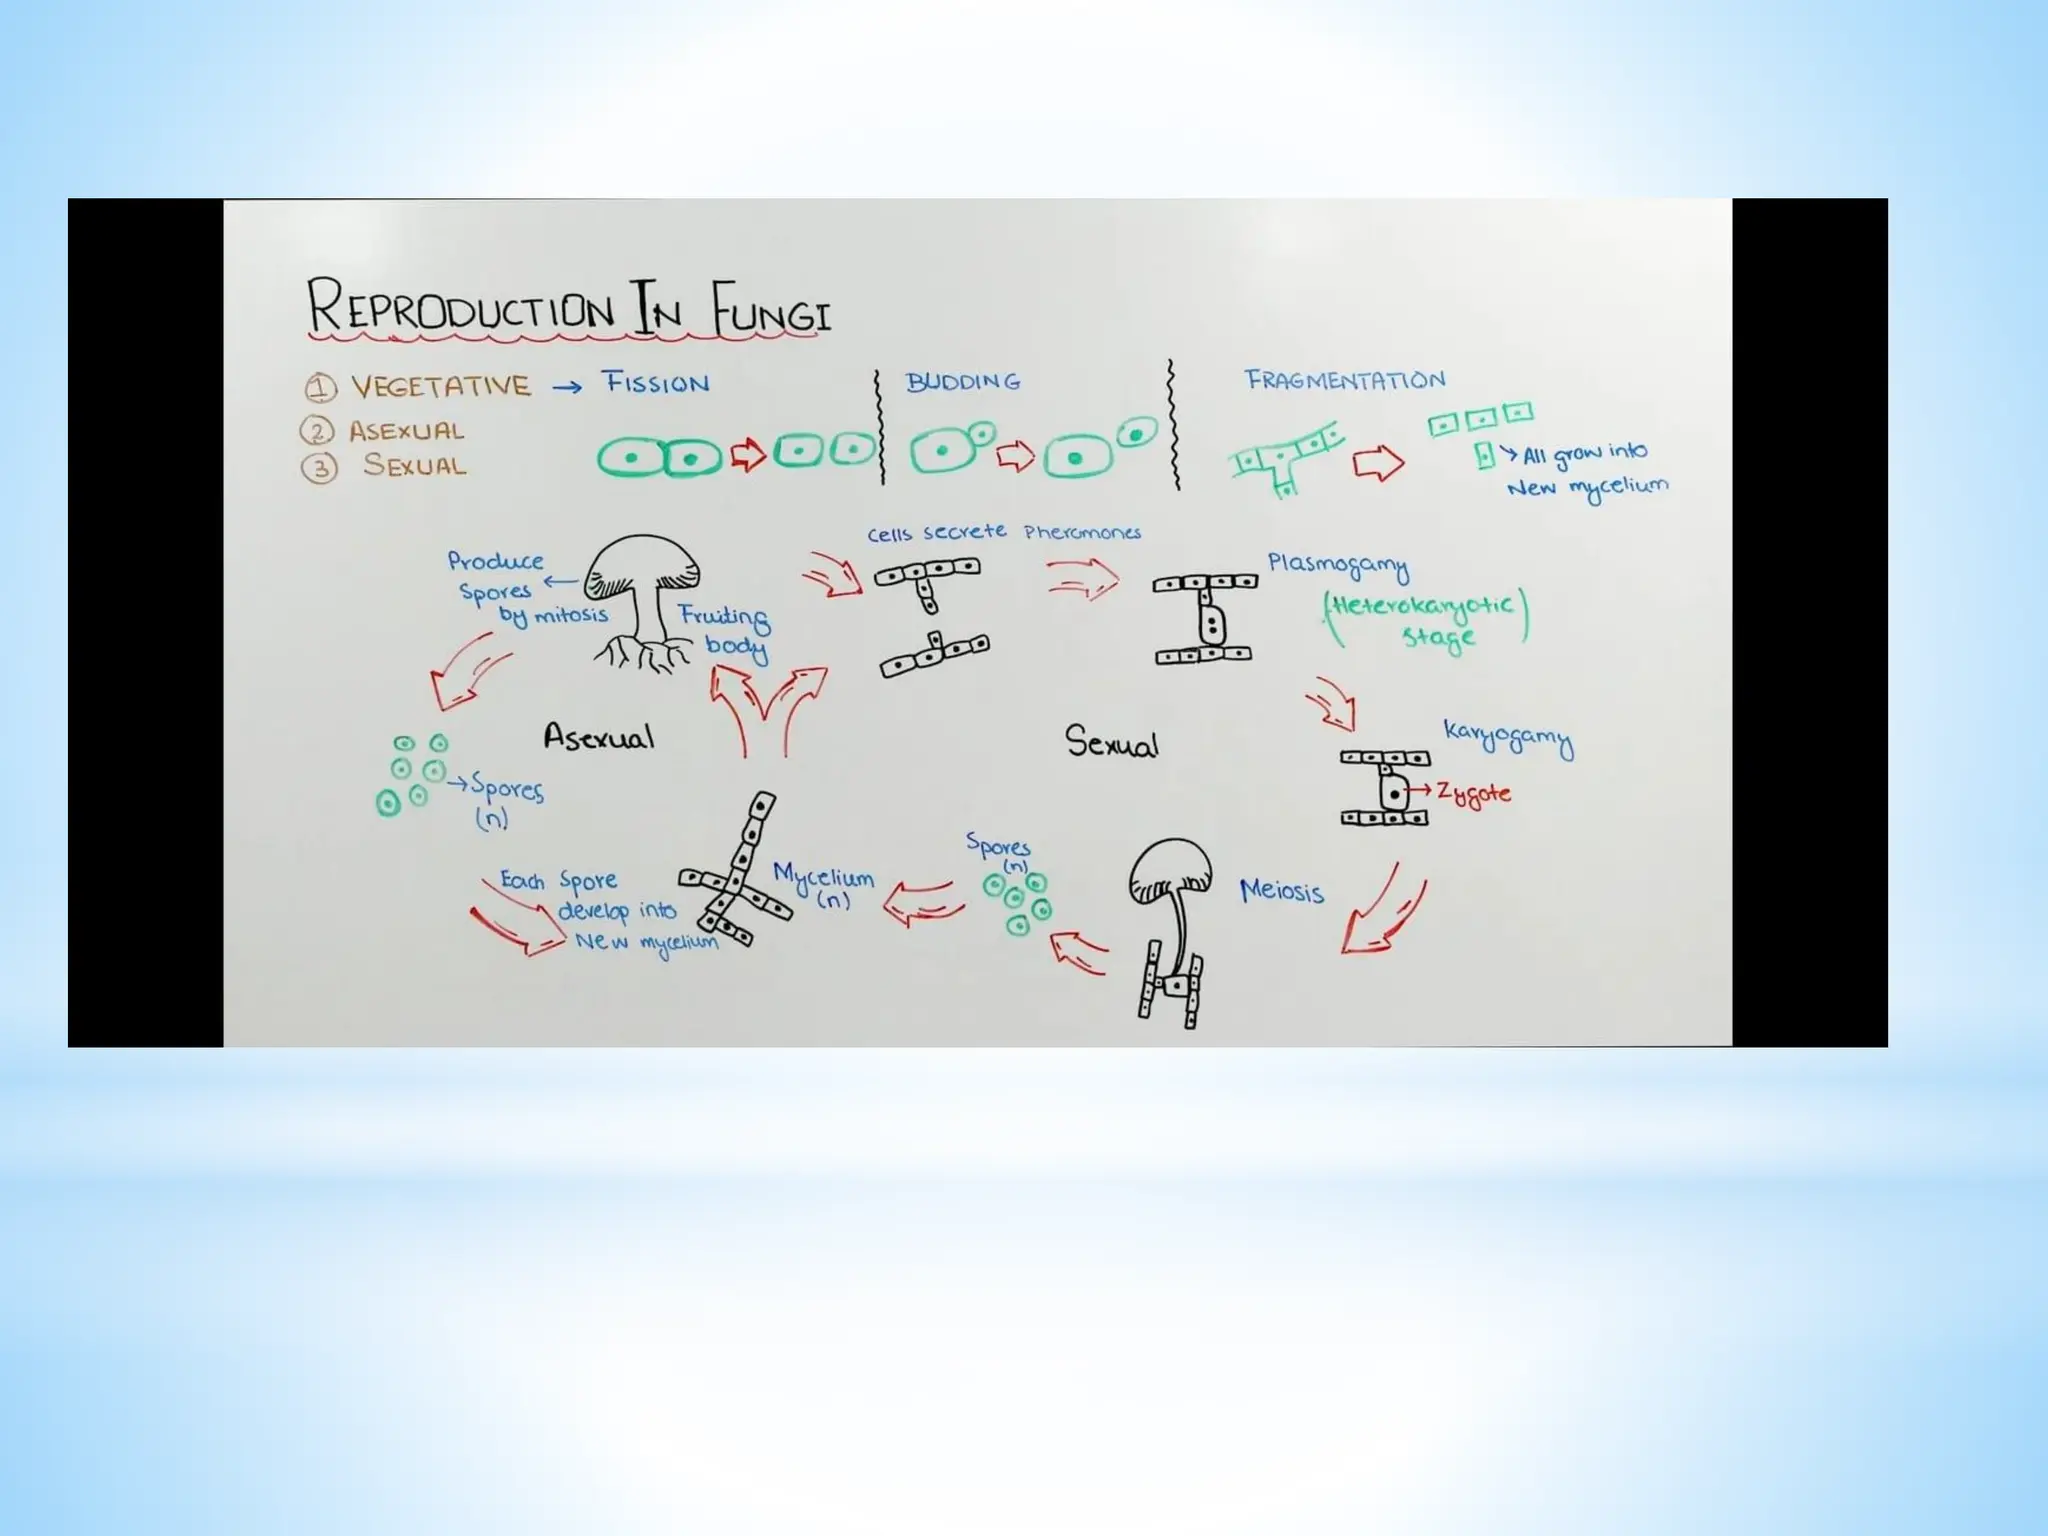 REPRODUCTION IN FUNGI
① VEGETATIVE → FISSION
BUDDING
FRAGMENTATION
② ASEXUAL
③ SEXUAL
→ All grow into
New mycelium
Produce
Spores ←
by mitosis
Fruiting
body
Cells secrete Pheromones
Plasmogamy
(Heterokaryotic
Stage)
Asexual
Sexual
Karyogamy
→ Zygote
→ Spores
(n)
Each Spore
develop into
New mycelium
Mycelium
(n)
Spores
(n)
Meiosis